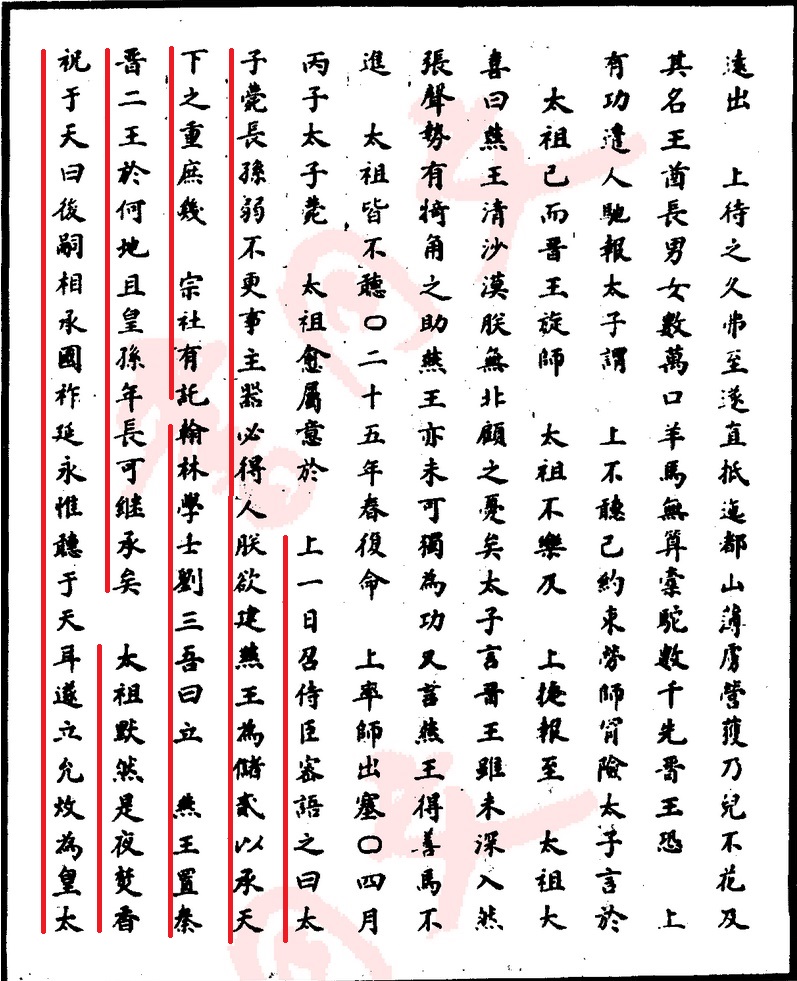 遠出　上待之久弗至遂直抵迤都山薄虜營獲乃兒不花及
其名王酋長男女數萬口羊馬無算橐駝數千先晋王恐　上
有功遣人馳報太子謂　上不聽己約束勞師冒險太子言於
太祖已而晋王旋師　太祖不樂及　上捷報至　太祖大
喜曰燕王清沙漠朕無北顧之憂矣太子言晋王雖未深入然
張聲勢有犄角之助燕王亦未可獨為功又言燕王得善馬不
進　太祖皆不聽〇二十五年春復命　上率師出塞〇四月
丙子太子薨　太祖愈屬意於　上一日召侍臣密語之曰太
子薨長孫弱不更事主器必得人朕欲建燕王為儲貳以承天
下之重庶幾　宗社有託翰林學士劉三吾曰立　燕王置秦
晋二王於何地且皇孫年長可継承矣　太祖默然是夜焚香
祝于天曰後嗣相承國祚延永惟聽于天耳遂立允炆為皇太